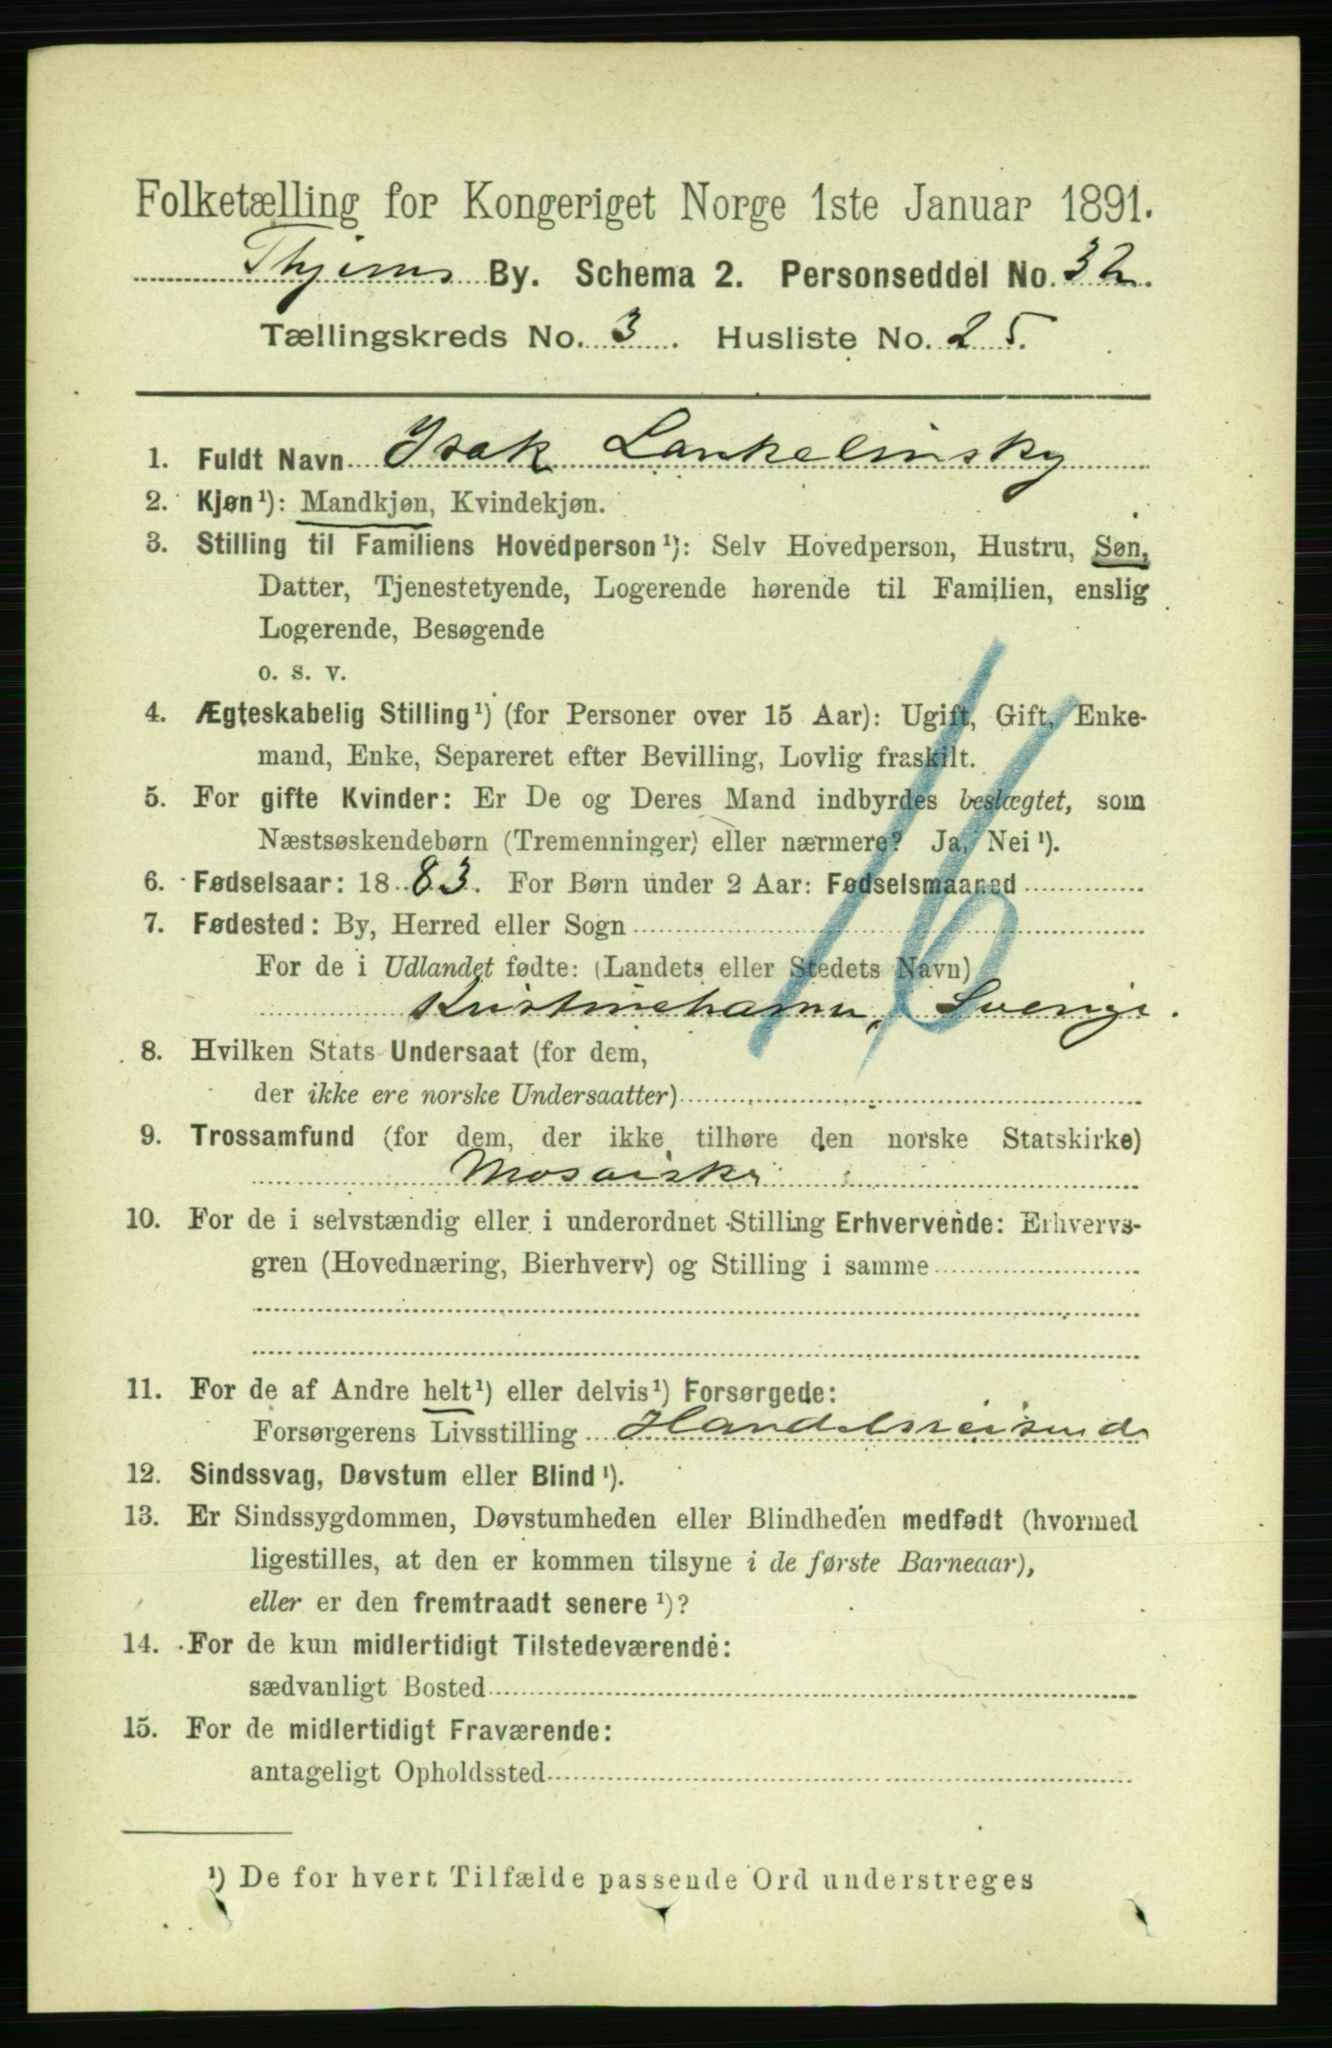 Folketælling for Kongeriget Norge 1ste Januar 1891.
Thjems By. Schema 2. Personseddel No. 32.
Tællingskreds No. 3. Husliste No. 25.
1. Fuldt Navn Isak Lankelinsky
2. Kjøn¹): Mandkjøn, Kvindekjøn.
3. Stilling til Familiens Hovedperson¹): Selv Hovedperson, Hustru, Søn,
Datter, Tjenestetyende, Logerende hørende til Familien, enslig
Logerende, Besøgende
o. s. v.
4. Ægteskabelig Stilling¹) (for Personer over 15 Aar): Ugift, Gift, Enke-
mand, Enke, Separeret efter Bevilling, Lovlig fraskilt.
5. For gifte Kvinder: Er De og Deres Mand indbyrdes beslægtet, som
Næstsøskendebørn (Tremenninger) eller nærmere? Ja, Nei¹).
6. Fødselsaar: 1883. For Børn under 2 Aar: Fødselsmaaned
7. Fødested: By, Herred eller Sogn
For de i Udlandet fødte: (Landets eller Stedets Navn)
Kristinehamn, Sverige.
16
8. Hvilken Stats Undersaat (for dem,
der ikke ere norske Undersaatter)
9. Trossamfund (for dem, der ikke tilhøre den norske Statskirke)
Mosaiske
10. For de i selvstændig eller i underordnet Stilling Erhvervende: Erhvervs-
gren (Hovednæring, Bierhverv) og Stilling i samme
11. For de af Andre helt¹) eller delvis¹) Forsørgede:
Forsørgerens Livsstilling Handelsreisende
12. Sindssvag, Døvstum eller Blind¹).
13. Er Sindssygdommen, Døvstumheden eller Blindheden medfødt (hvormed
ligestilles, at den er kommen tilsyne i de første Barneaar),
eller er den fremtraadt senere¹)?
14. For de kun midlertidigt Tilstedeværende:
sædvanligt Bosted
15. For de midlertidigt Fraværende:
antageligt Opholdssted
¹) De for hvert Tilfælde passende Ord understreges